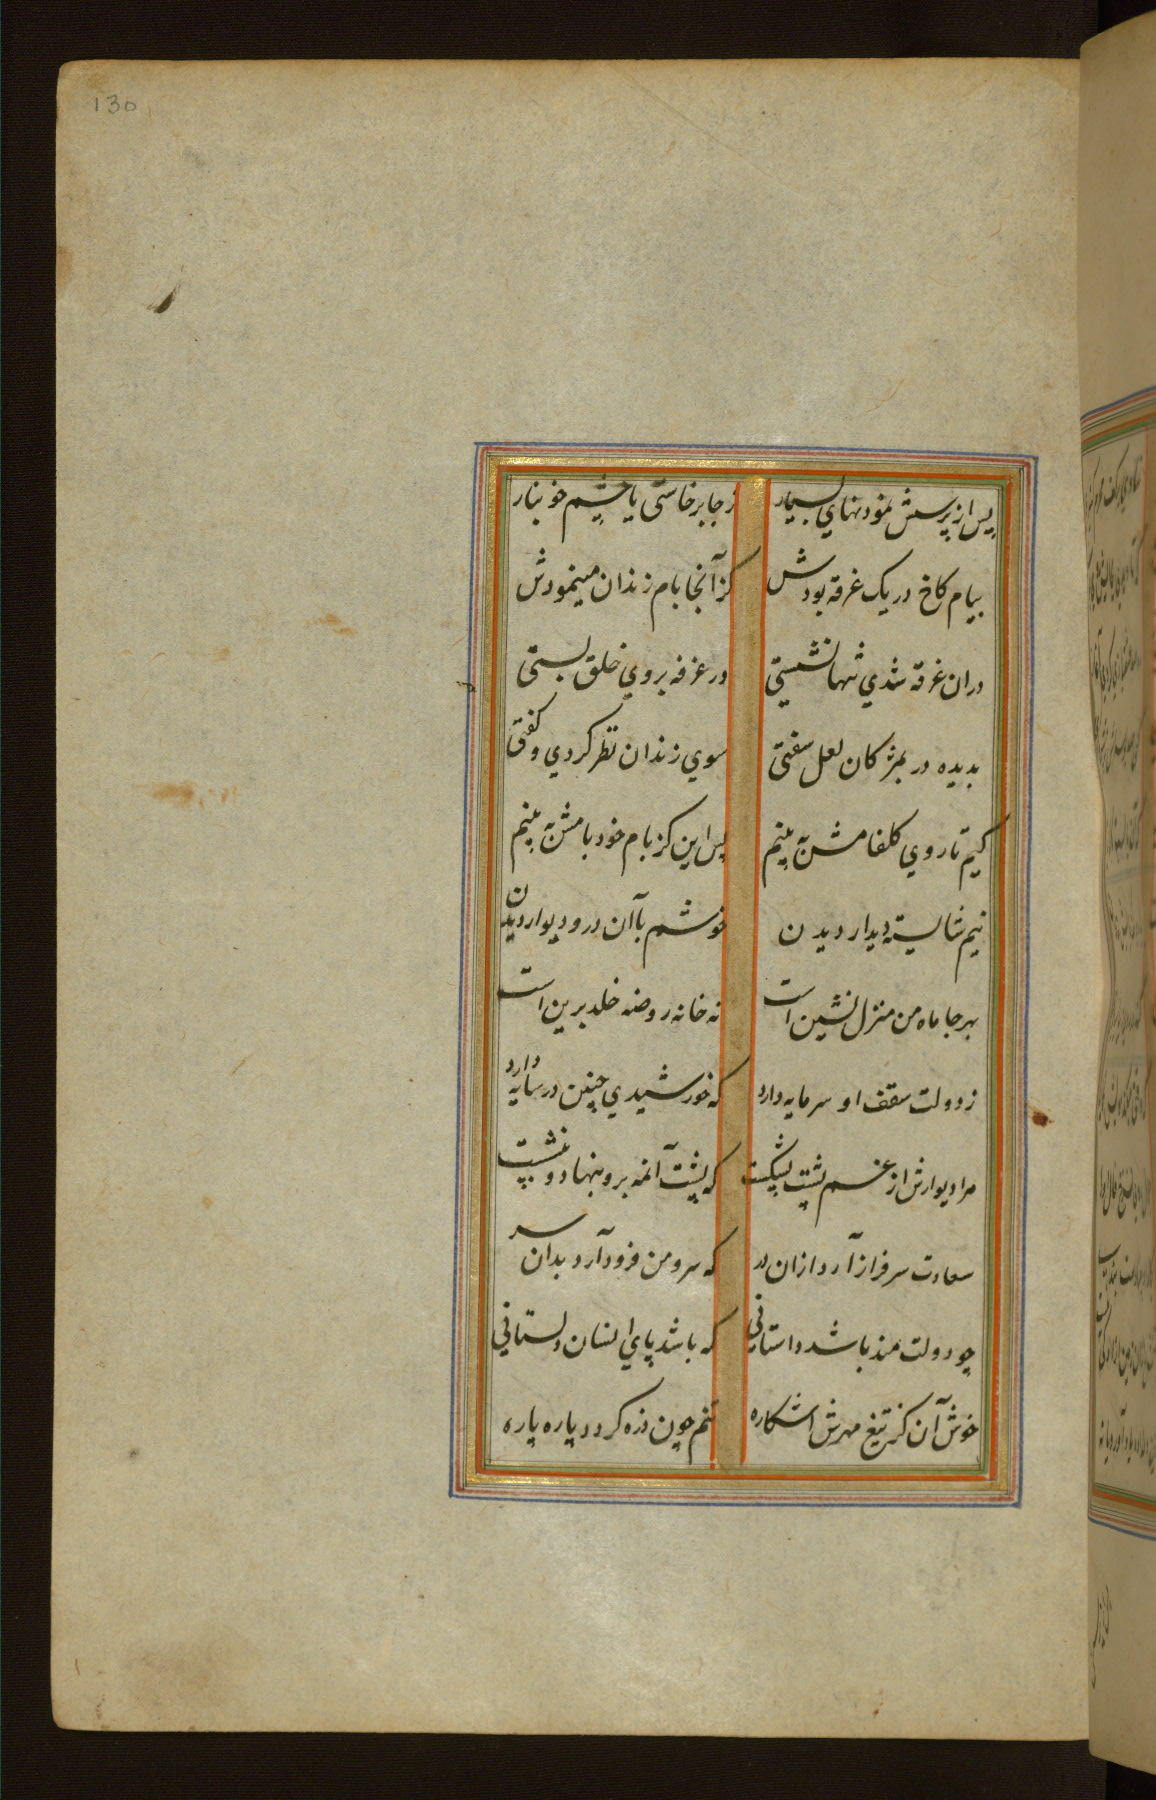 130
پس از پرسش نمودنهای بسیار ز جا برخاستی با چشم خونبار
ببام کاخ در یک غرفه بودش کز آنجا بام زندان مینمودش
دران غرفه شدی تنها نشستی در غرفه بروی خلق بستی
بدیده در بمژکان لعل سفتی سوی زندان نظر کردی و کفتی
کیم تا روی کلفامش به بینم پس این کز بام خود بامش به بینم
نیم شایسته دیدار دیدن خوشم با آن در و دیوار دیدن
بهرجا ماه من منزل نشین است نه خانه روضه خلد برین است
ز دولت سقف او سرمایه دارد که خورشیدی چنین در سایه دارد
مرا دیوارش از غم پشت بشکست که پشت آنمه برو بنهاد و بنشست
سعادت سرفراز آرد ازان در که سرو من فرود آرد بدان سر
چو دولتمند باشد داستانی که باشد پای انسان دلستانی
خوش آن کز تیغ مهرش اشکاره تنم چون ذره کردد پاره پاره